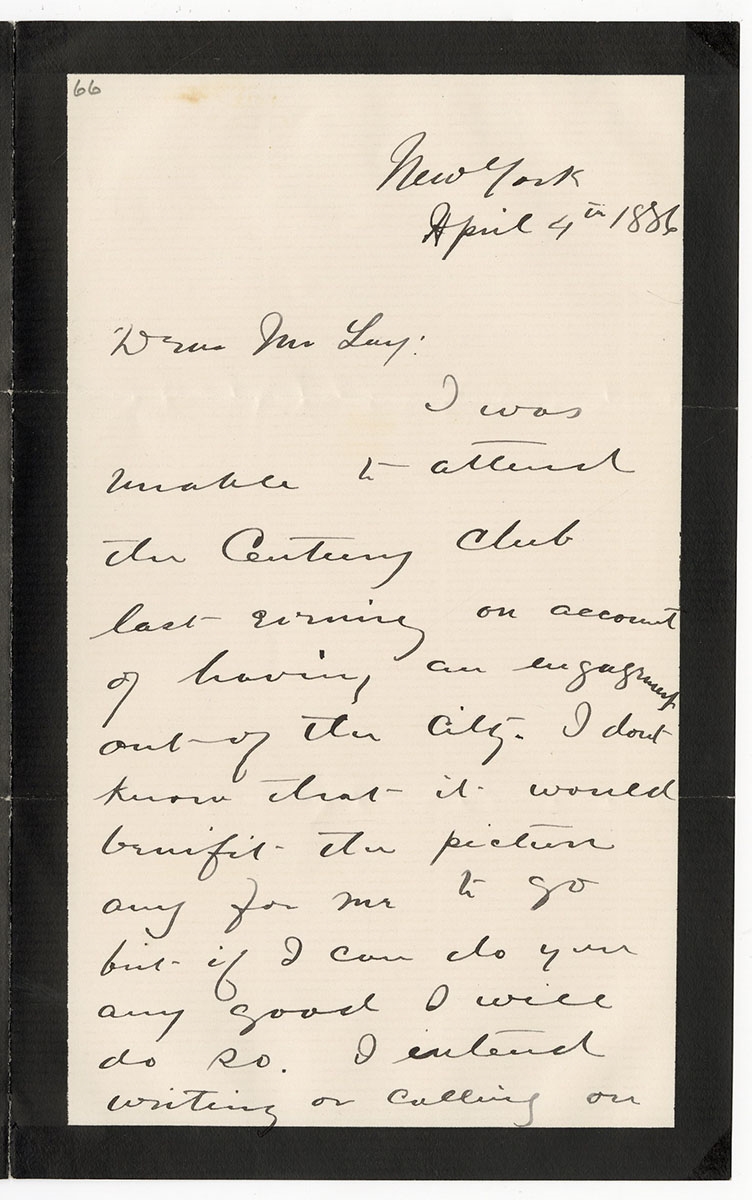 66
New York
April 4th 1886
Dear Mr Lay:
I was
unable to attend
the Century Club
last evening on account
of having an engagment
out of the City. I dont
know that it would
benifit the picture
any for me to go
but if I can do you
any good I will
do so. I intend
writing or calling on